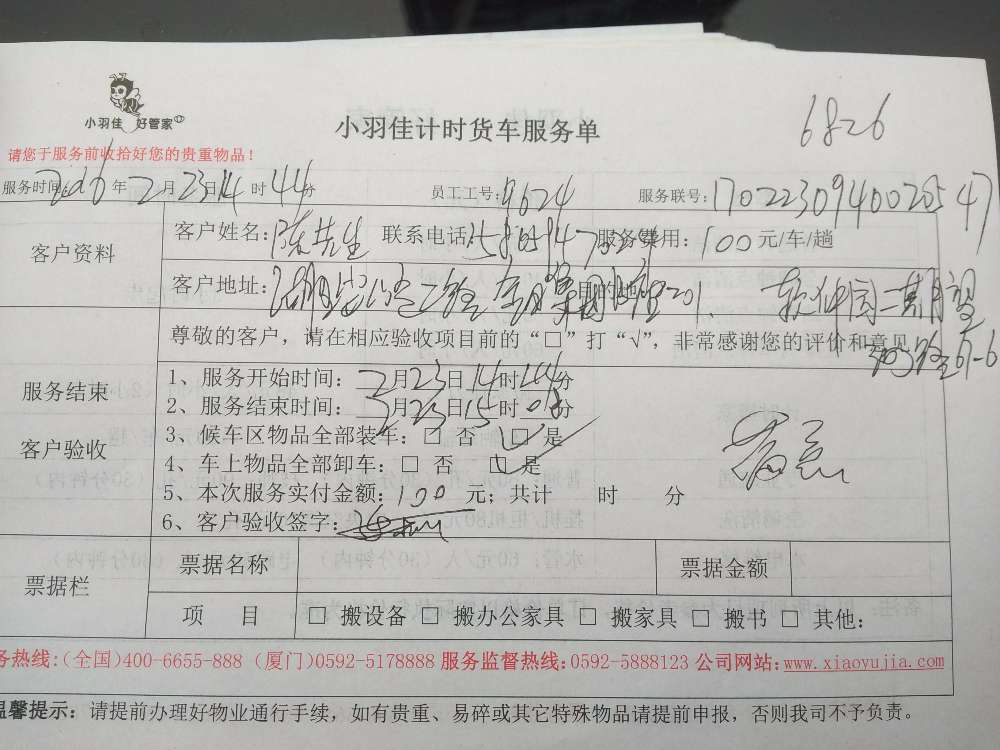 小羽佳 好管家
小羽佳计时货车服务单
6826
请您于服务前收拾好您的贵重物品！
服务时间: 年2月23日14时44分 员工工号:9624 服务联号:
客户资料
客户姓名:陈先生 联系电话: 服务费用:100元/车/趟
客户地址: 目的地: 软件园二期望
尊敬的客户，请在相应验收项目前的“□”打“√”，非常感谢您的评价和意见
服务结束
客户验收
1、服务开始时间: 2月23日14时44分
2、服务结束时间: 月23日15时 分
3、候车区物品全部装车:□ 否 □ 是
4、车上物品全部卸车:□ 否 □ 是
5、本次服务实付金额:100元；共计 时 分
6、客户验收签字:
满意
票据栏
票据名称 票据金额
项 目 □ 搬设备 □ 搬办公家具 □ 搬家具 □ 搬书 □ 其他:
务热线:(全国)400-6655-888 (厦门)0592-5178888 服务监督热线:0592-5888123 公司网站:www.xiaoyujia.com
温馨提示: 请提前办理好物业通行手续，如有贵重、易碎或其它特殊物品请提前申报，否则我司不予负责。